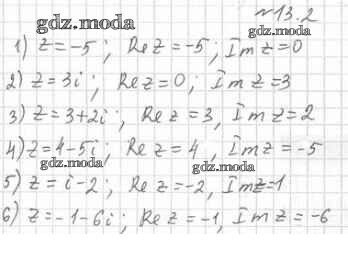 №13.2
gdz.moda
gdz.moda
1) z = -5; Re z = -5; Im z = 0
2) z = 3i; Re z = 0; Im z = 3
3) z = 3+2i; Re z = 3, Im z = 2
4) z = 4-5i; Re z = 4, Im z = -5
gdz.moda
gdz.moda
5) z = i-2; Re z = -2, Im z = 1
6) z = -1-6i; Re z = -1, Im z = -6